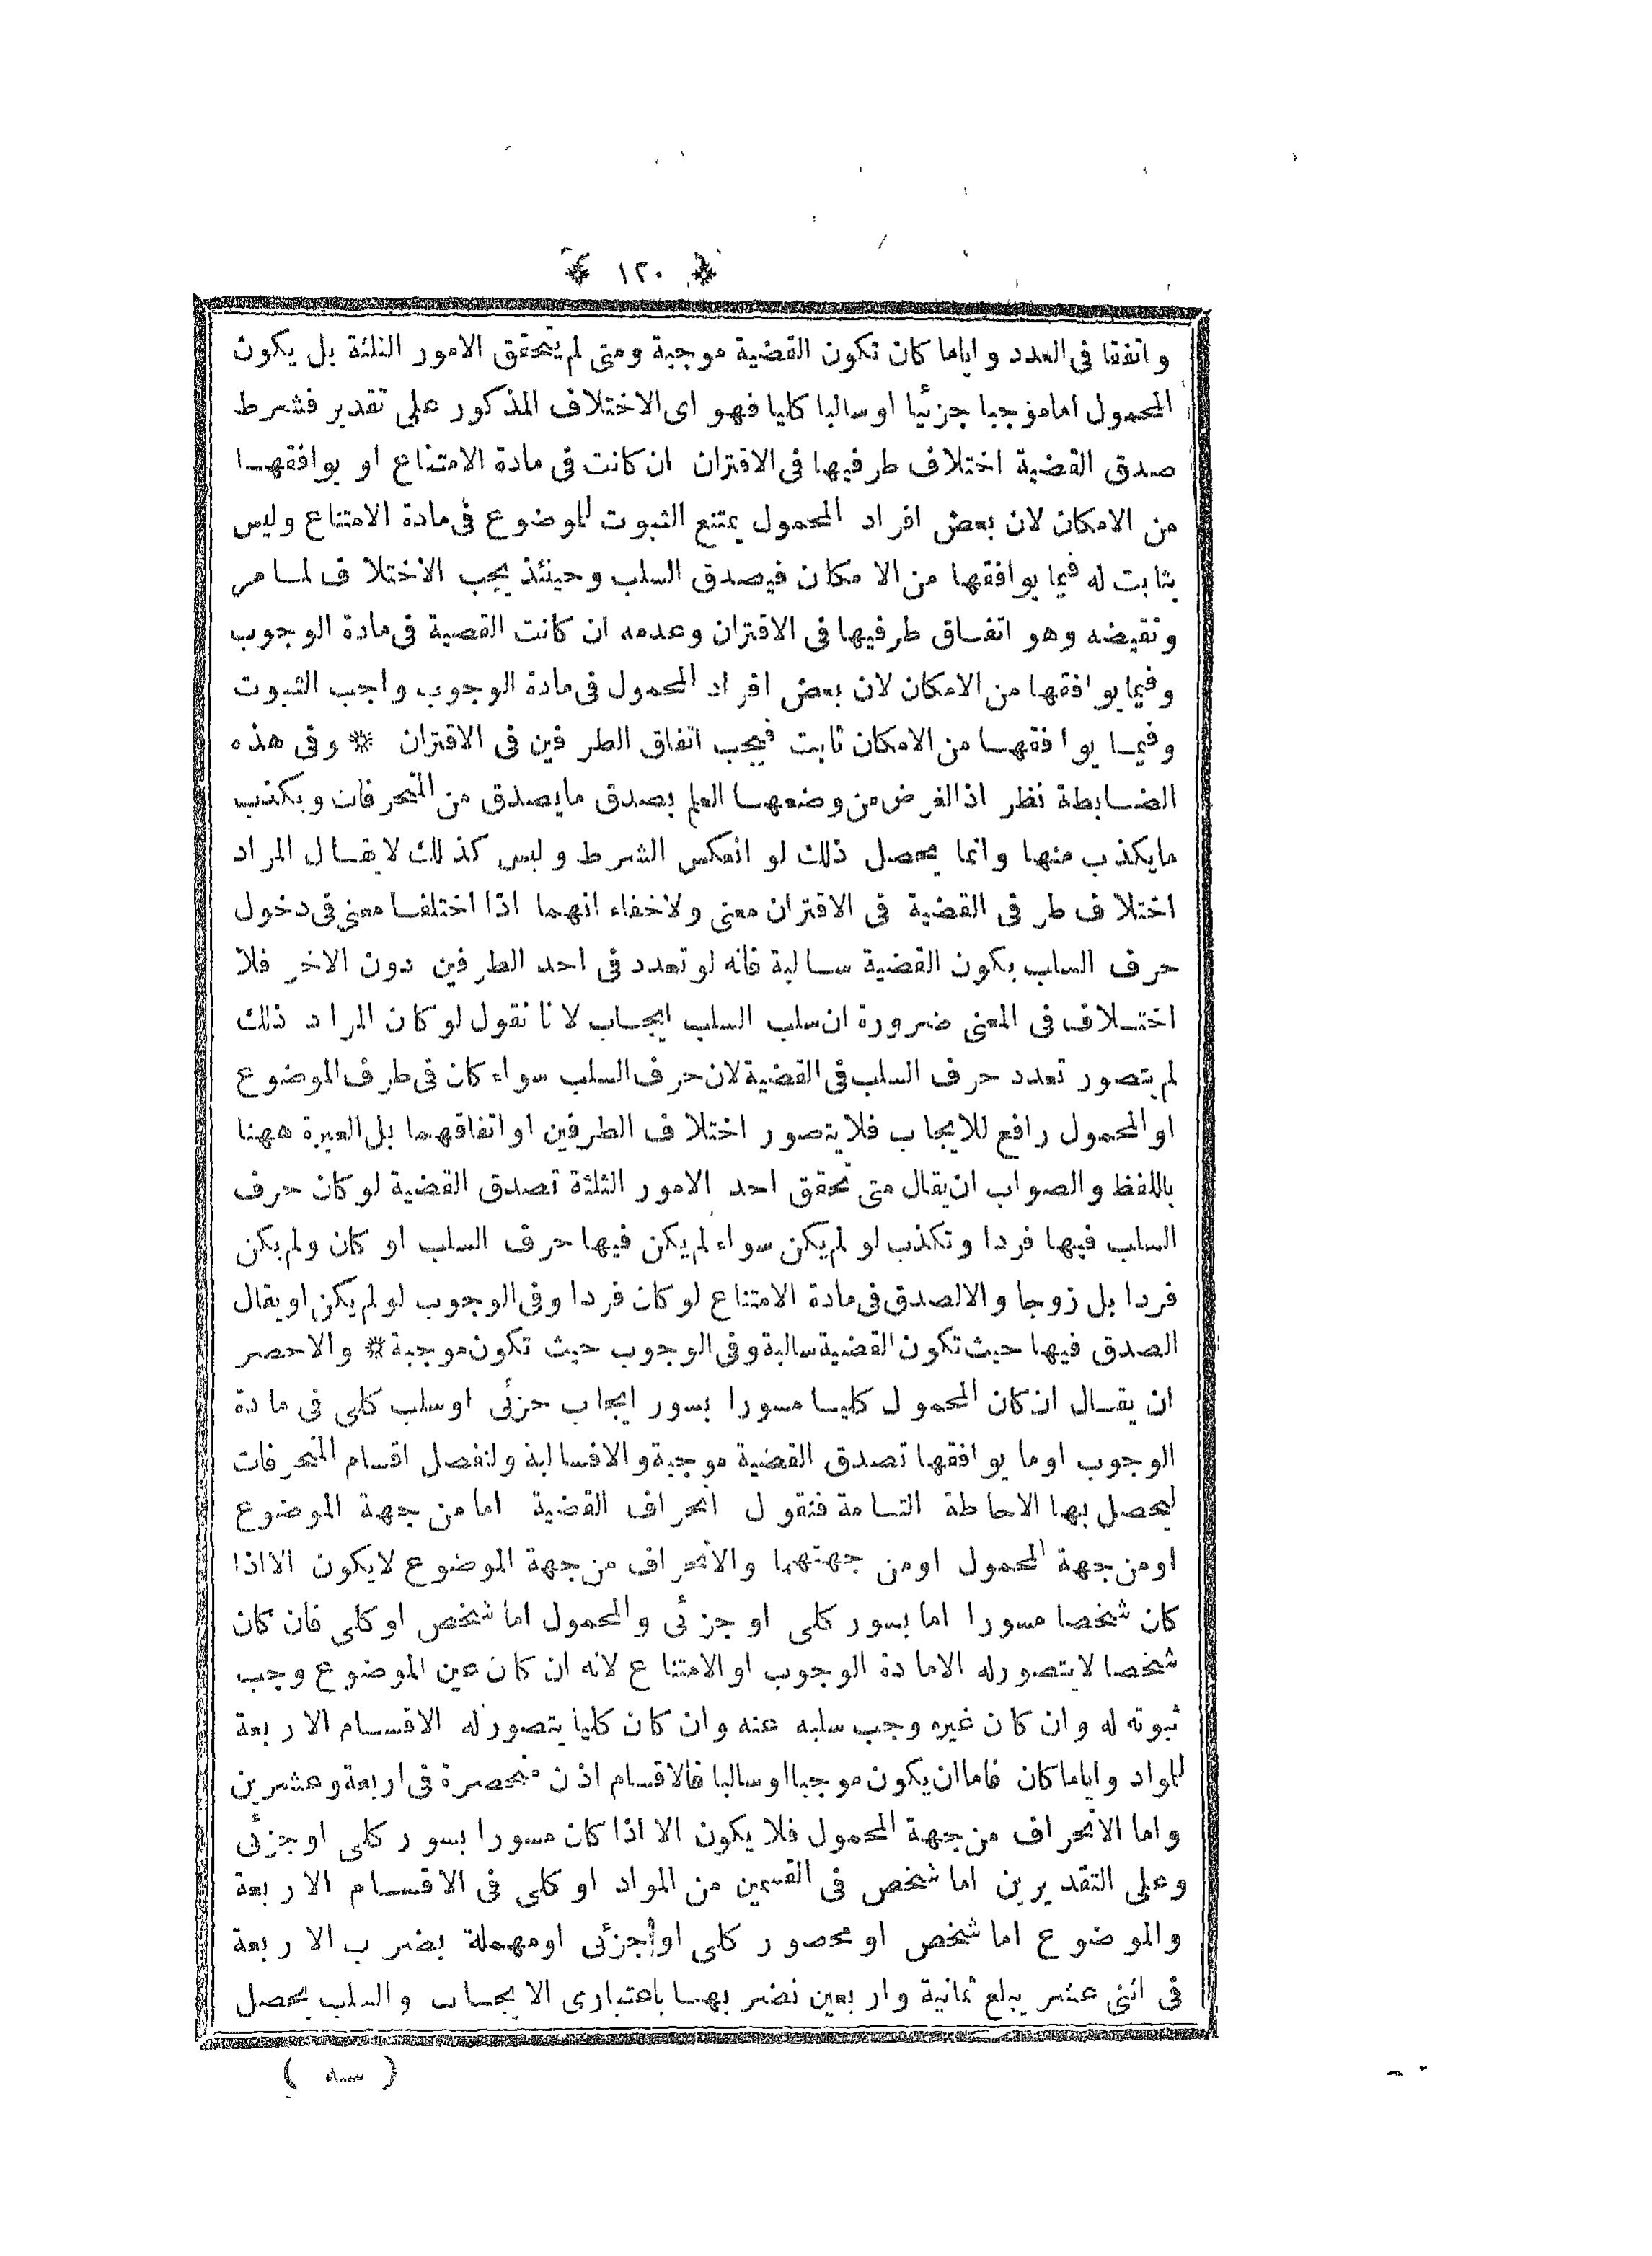 ❊ ١٢٠ ❊
واتفقا فى العدد واياما كان تكون القضية موجبة ومتى لم يتحقق الامور الثلثة بل يكون
المحمول اما موجبا جزئيا او سالبا كليا فهو اى الاختلاف المذكور على تقدير فشرط
صدق القضية اختلاف طرفيها فى الاقتران ان كانت فى مادة الامتناع او يوافقهـا
من الامكان لان بعض افراد المحمول يمتنع الثبوت للموضوع فى مادة الامتناع وليس
بثابت له فيما يوافقها من الامكان فيصدق السلب وحينئذ يجب الاختلاف لما مر
ونقيضه وهو اتفاق طرفيها فى الاقتران وعدمه ان كانت القضية فى مادة الوجوب
وفيما يوافقها من الامكان لان بعض افراد المحمول فى مادة الوجوب واجب الثبوت
وفيما يوافقها من الامكان ثابت فيجب اتفاق الطرفين فى الاقتران ❊ وفى هذه
الضابطة نظر اذ الغرض من وضعها العلم بصدق مايصدق من المنحرفات وبكذب
مايكذب منها وانما يحصل ذلك لو انعكس الشرط وليس كذلك لا يقال المراد
اختلاف طرفى القضية فى الاقتران معنى ولاخفاء انهما اذا اختلفا معنى فى دخول
حرف السلب يكون القضية سالبة فانه لو تعدد فى احد الطرفين دون الاخر فلا
اختلاف فى المعنى ضرورة ان سلب السلب ايجاب لانا نقول لو كان المراد ذلك
لم يتصور تعدد حرف السلب فى القضية لان حرف السلب سواء كان فى طرف الموضوع
او المحمول رافع للايجاب فلا يتصور اختلاف الطرفين او اتفاقهما بل العبرة ههنا
باللفظ والصواب ان يقال متى تحقق احد الامور الثلثة تصدق القضية لو كان حرف
السلب فيها فردا وتكذب لو لم يكن سواء لم يكن فيها حرف السلب او كان ولم يكن
فردا بل زوجا والا لصدق فى مادة الامتناع لو كان فردا وفى الوجوب لو لم يكن او يقال
الصدق فيها حيث تكون القضية سالبة وفى الوجوب حيث تكون موجبة ❊ والاحصر
ان يقال ان كان المحمول كليا مسورا بسور ايجاب جزئى او سلب كلى فى مادة
الوجوب او ما يوافقها تصدق القضية موجبة والا فسالبة ولنفصل اقسام المنحرفات
ليحصل بها الاحاطة التامة فنقول انحراف القضية اما من جهة الموضوع
او من جهة المحمول او من جهتهما والانحراف من جهة الموضوع لايكون الا اذا
كان شخصا مسورا اما بسور كلى او جزئى والمحمول اما شخص او كلى فان كان
شخصا لايتصور له الا مادة الوجوب او الامتناع لانه ان كان عين الموضوع وجب
ثبوته له وان كان غيره وجب سلبه عنه وان كان كليا يتصور له الاقسام الاربعة
للمواد واياما كان فاما ان يكون موجبا او سالبا فالاقسام اذن منحصرة فى اربعة وعشرين
واما الانحراف من جهة المحمول فلا يكون الا اذا كان مسورا بسور كلى او جزئى
وعلى التقديرين اما شخص فى القسمين من المواد او كلى فى الاقسام الاربعة
والموضوع اما شخص او محصور كلى او جزئى او مهملة بضرب الاربعة
فى اثنى عشر يبلغ ثمانية واربعين نضربها باعتبارى الايجاب والسلب يحصل